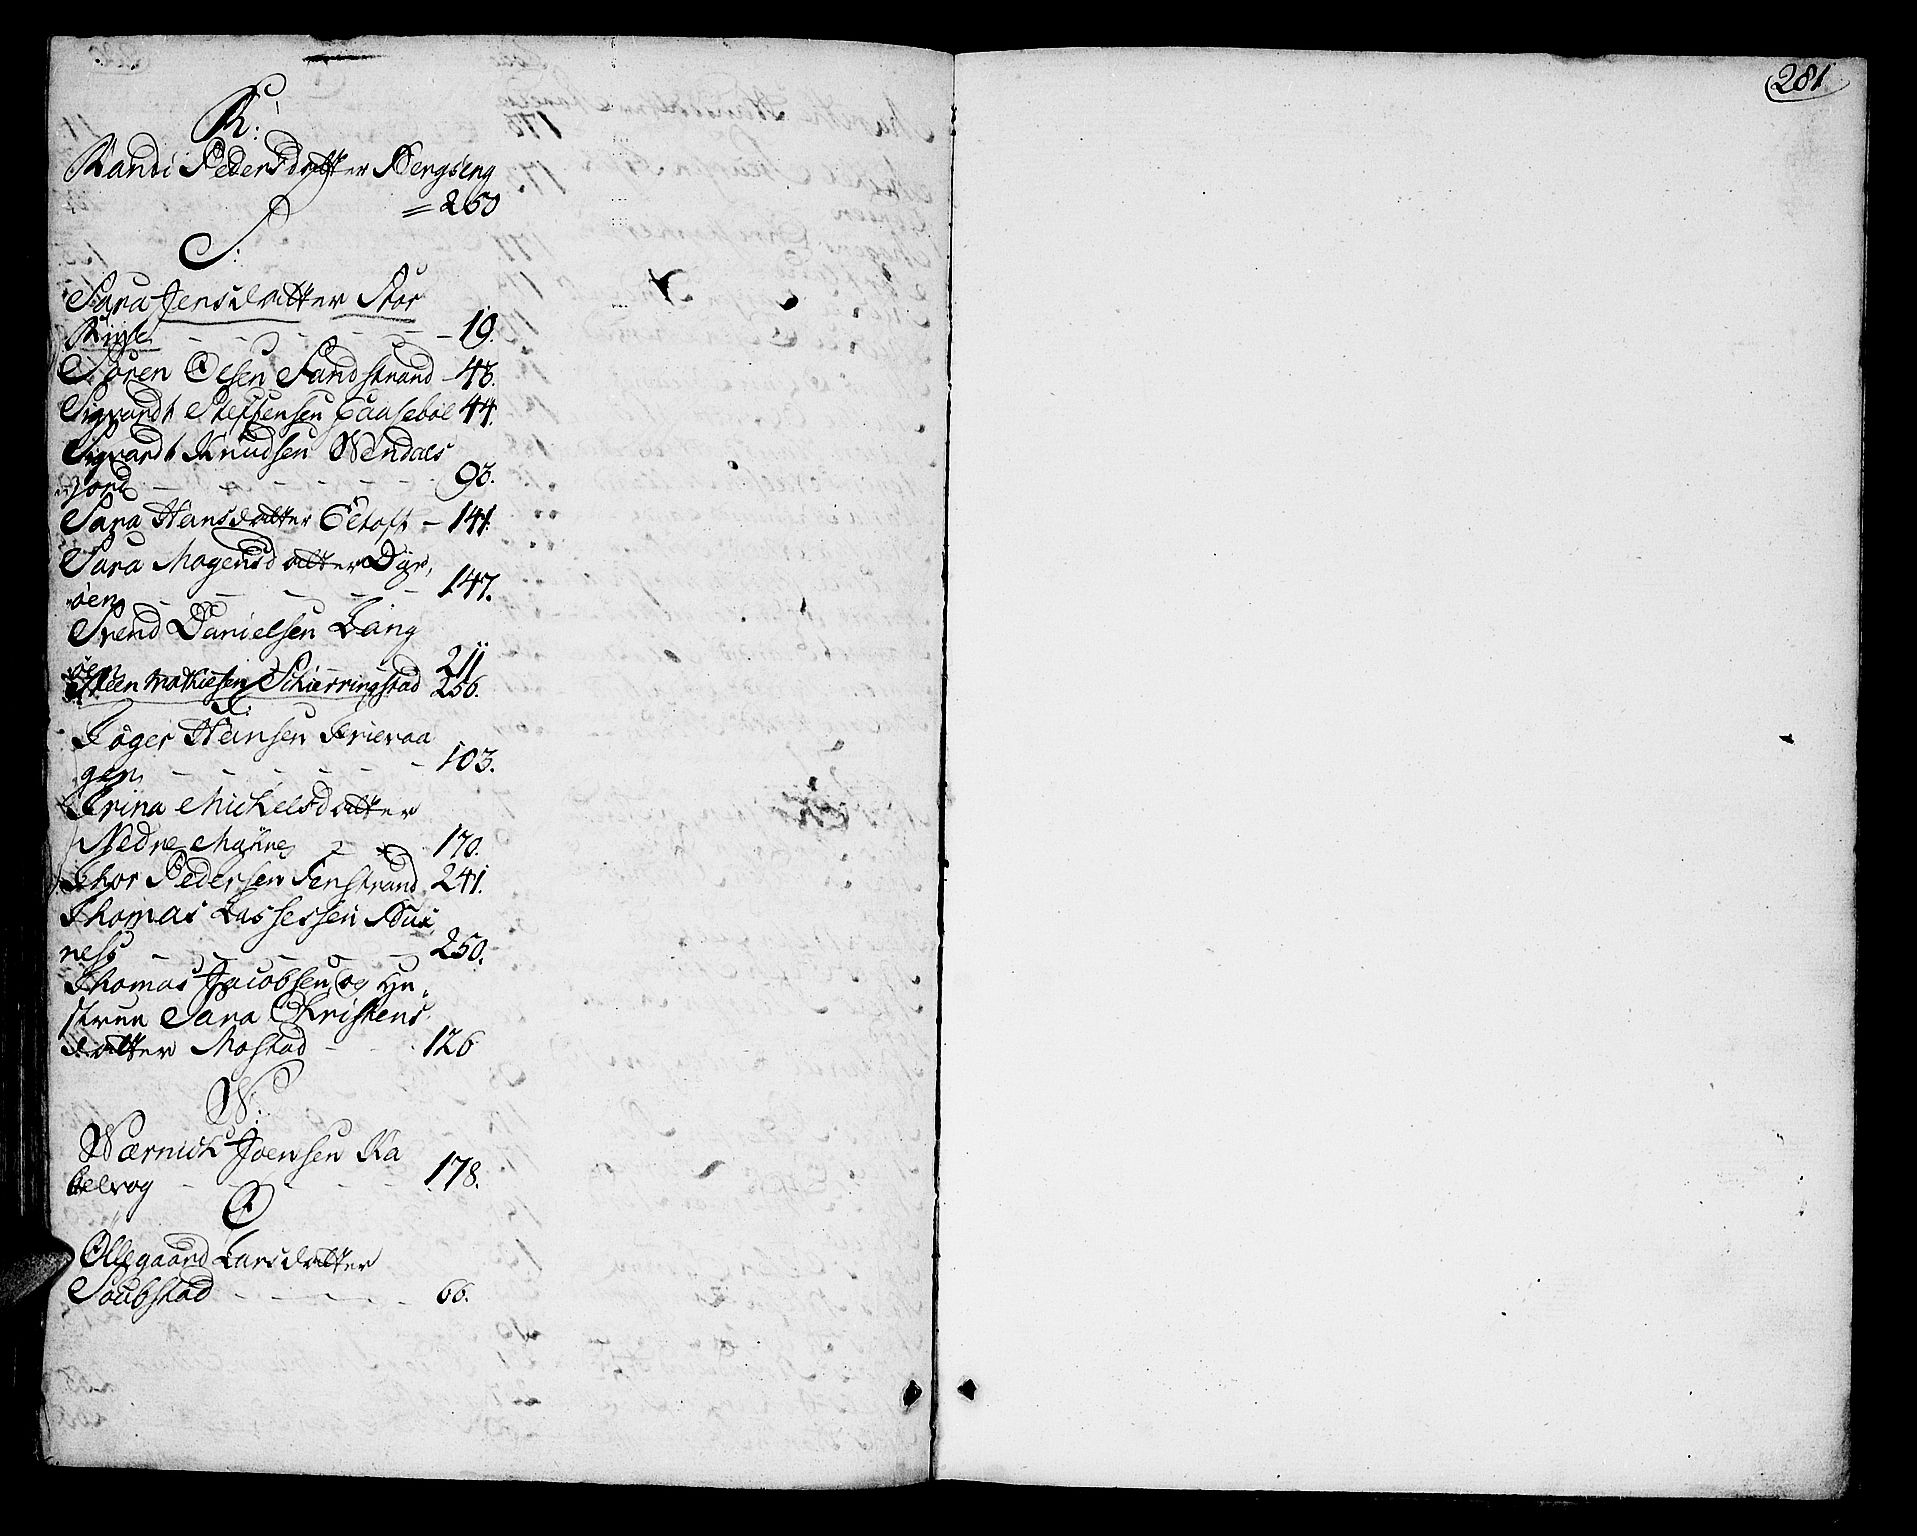 R:
Randi Pedersdatter Bergseng
= 250
S:
Sara Jensdatter Stor
- - - - - - 19.
Søren Olsen Sandstrand - 48.
Sigvardt Steffensen Gaasebøl 44.
Sigvardt Knudsen Wendals
jord - - - - - - - 93.
Sara Hansdatter Eltoft - 141.
Sara Mogensdatter Dyr,
øen - - - - - 147.
Svend Danielsen Lang
øen 211
Steen Mathiesen Schierringstad 256.
T:
Tøger Hansen Trievaa
gen - - - - - - 103.
Trina Michelsdatter
Nedre - - - 170.
Thor Pedersen Fenstrand 241.
Thomas Lassesen Bux,
ness - - - - - - 250.
Thomas Jacobsen og Hu,
struе Sara Christens
datter Mostad - - 126
W:
Wærnich Joensen Ka
belvog - - - - - - 178.
Ø
Øllegaard Larsdatter
Soubstad - - - - - 66.
281